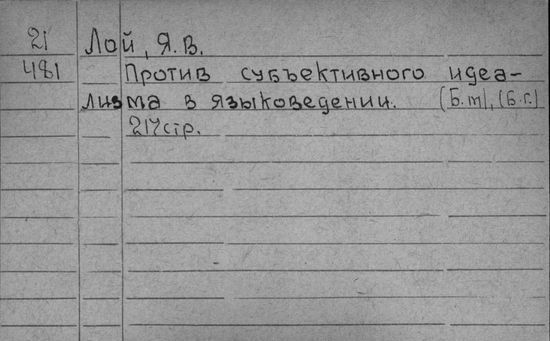 21 Лой, Я.В.
481 Против субъективного идеа-
лизма в языковедении. (Б.м), (Б.г.)
217стр.